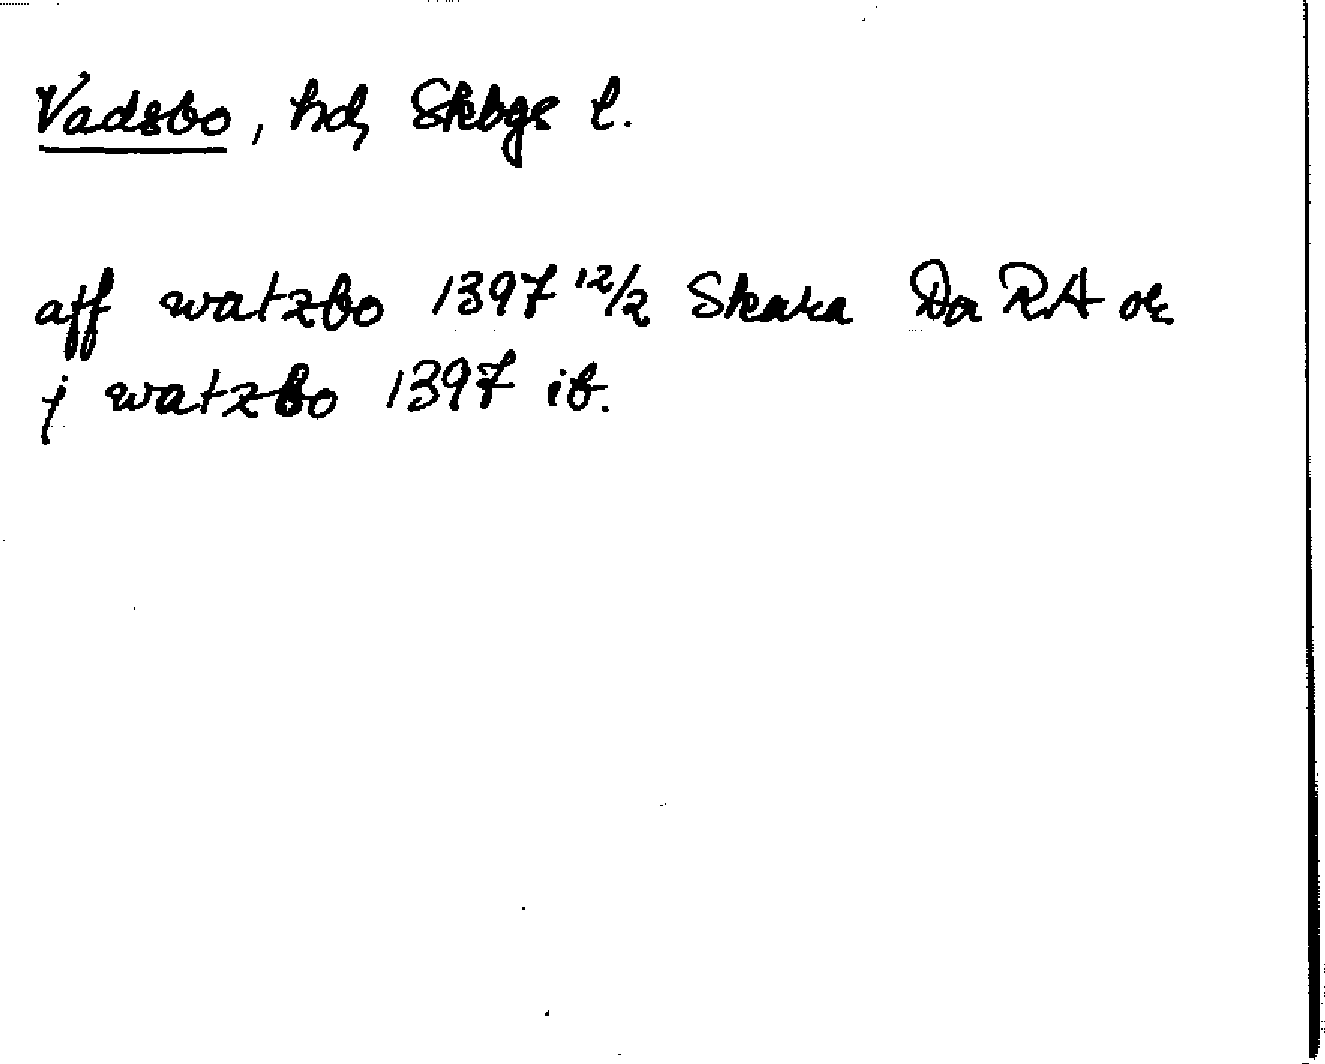 Vadsbo, hd, Skbgs l.
aff watzbo 1397 12/2 Skara Da RA or
j watzbo 1397 ib.